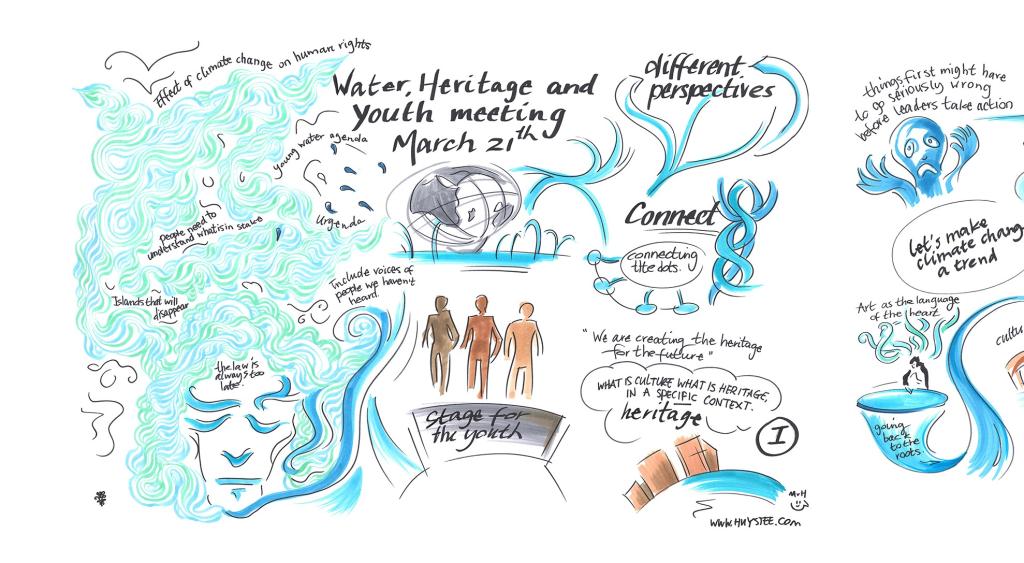 Effect of climate change on human rights
Water, Heritage and
Youth meeting
March 21th
young water agenda
Urgenda
people need to
understand what is in stake
Islands that will
disappear
Include voices of
people we haven't
heard.
the law is
always too
late.
stage for
the youth
different
perspectives
Connect
connecting
the dots.
"We are creating the heritage
for the future"
WHAT IS CULTURE WHAT IS HERITAGE,
IN A SPECIFIC CONTEXT.
heritage
I
MvH
www.HUYSTEE.com
things first might have
to go seriously wrong
before leaders take action
Let's make
climate chang
a trend
Art as the language
of the heart
going
back
to the
roots.
cultu